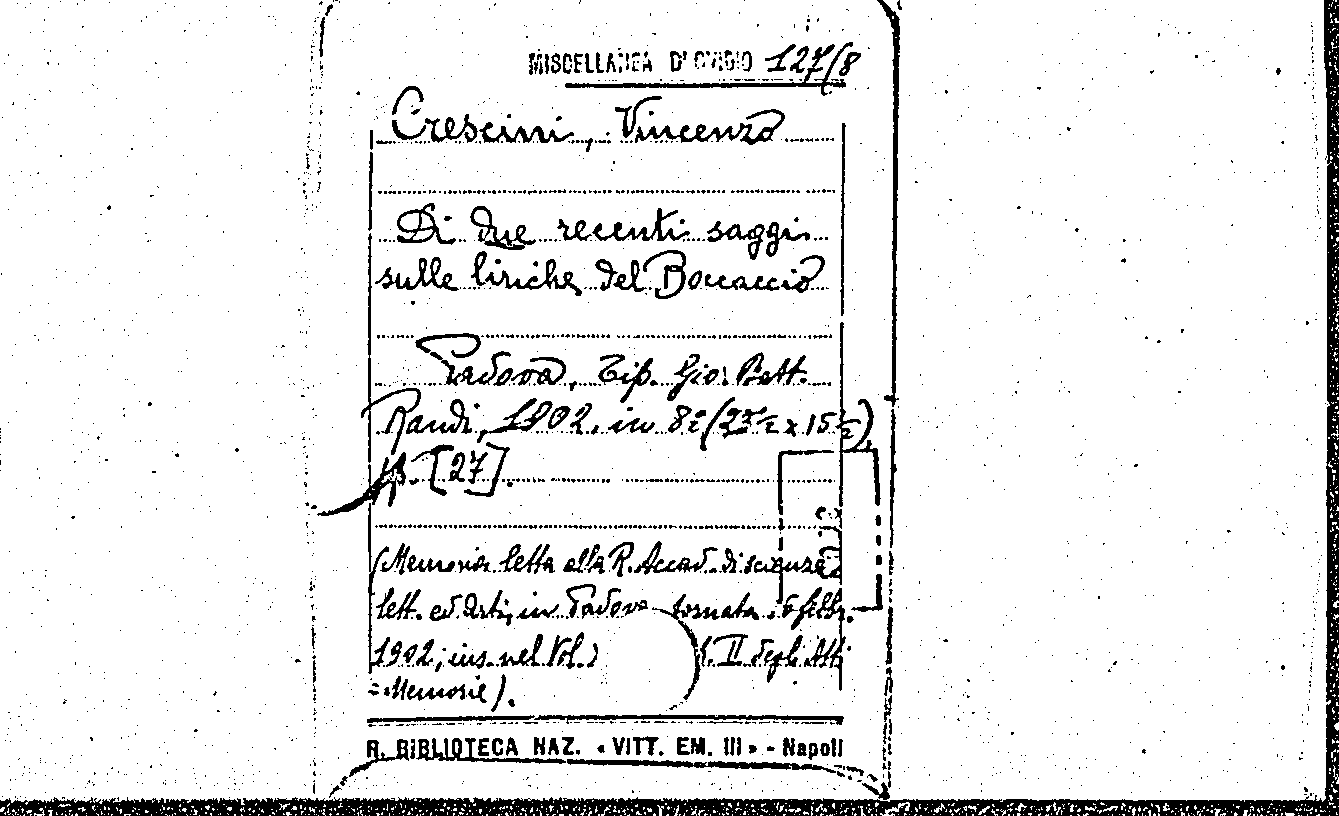 MISCELLANEA D'OVIDIO 127/8
Crescini, Vincenzo
Di due recenti saggi
sulle liriche del Boccaccio
Padova, Tip. Gio: Batt.
Randi, 1902. in 8º (23½ x 15½)
pp. [27].
(Memoria letta alla R. Accad. di scienze
lett. ed Arti, in Padova tornata febbr.
1902; ins. nel Vol. II degli Atti
= Memorie).
R. BIBLIOTECA NAZ. « VITT. EM. III » - Napoli